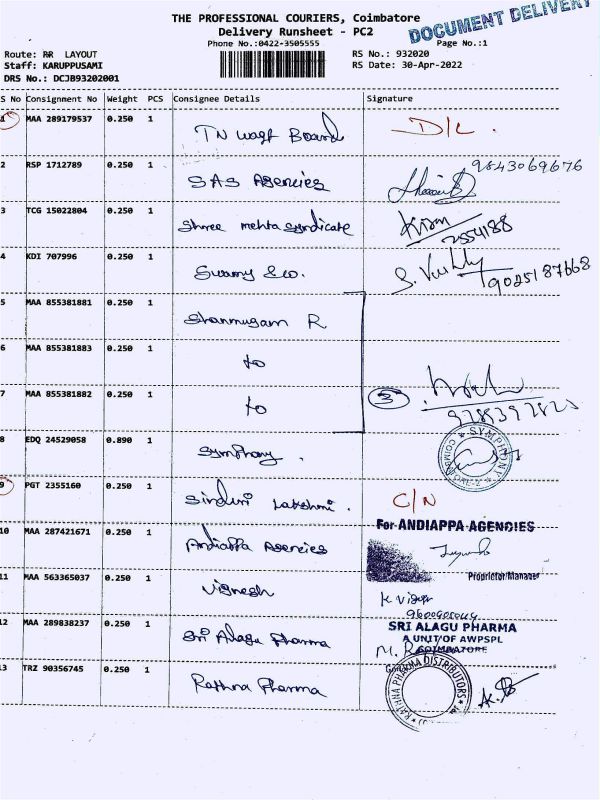 THE PROFESSIONAL COURIERS, Coimbatore
DOCUMENT DELIVERY
Delivery Runsheet - PC2
Phone No.:0422-3505555
Page No.:1
Route: RR LAYOUT
RS No.: 932020
Staff: KARUPPUSAMI
RS Date: 30-Apr-2022
DRS No.: DCJB93202001
S No Consignment No Weight PCS Consignee Details Signature
1 MAA 289179537 0.250 1 TN waqf Board D/L.
2 RSP 1712789 0.250 1 SAS Agencies 9843069676
3 TCG 15022804 0.250 1 Shree mehta syndicate Kiran 2554188
4 KDI 707996 0.250 1 Swamy & co. 9025187668
5 MAA 855381881 0.250 1 Shanmugam R
6 MAA 855381883 0.250 1 to
7 MAA 855381882 0.250 1 to 3
8 EDQ 24529058 0.890 1 Symphony. SYMPHONY
9 PGT 2355160 0.250 1 Sinduri Lakshmi. C/N
10 MAA 287421671 0.250 1 Andiappa Agencies For ANDIAPPA AGENCIES
Proprietor/Manager
11 MAA 563365037 0.250 1 Vignesh K Vignesh
12 MAA 289838237 0.250 1 Sri Alagu Pharma SRI ALAGU PHARMA
A UNIT OF AWPSPL
COIMBATORE
13 TRZ 90356745 0.250 1 Rathna Pharma RATHNA PHARMA DISTRIBUTORS